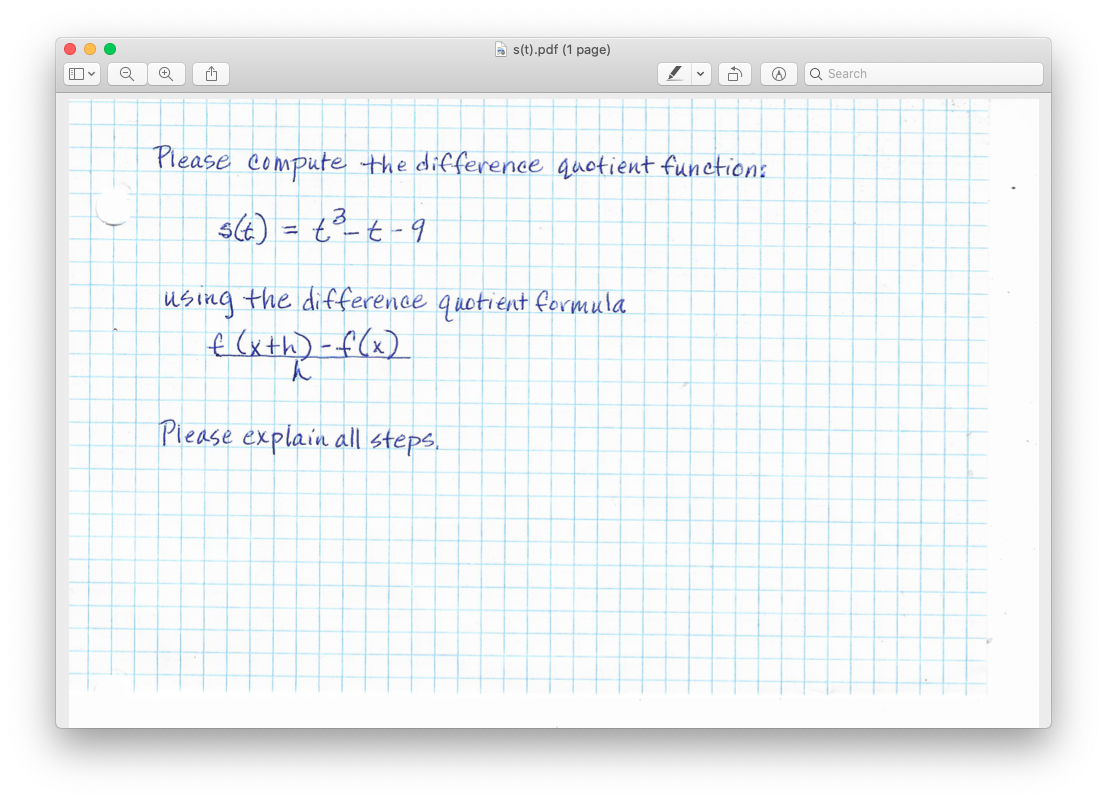 s(t).pdf (1 page)
Search
Please compute the difference quotient function:
s(t) = t³ - t - 9
using the difference quotient formula
f(x+h) - f(x)
h
Please explain all steps.